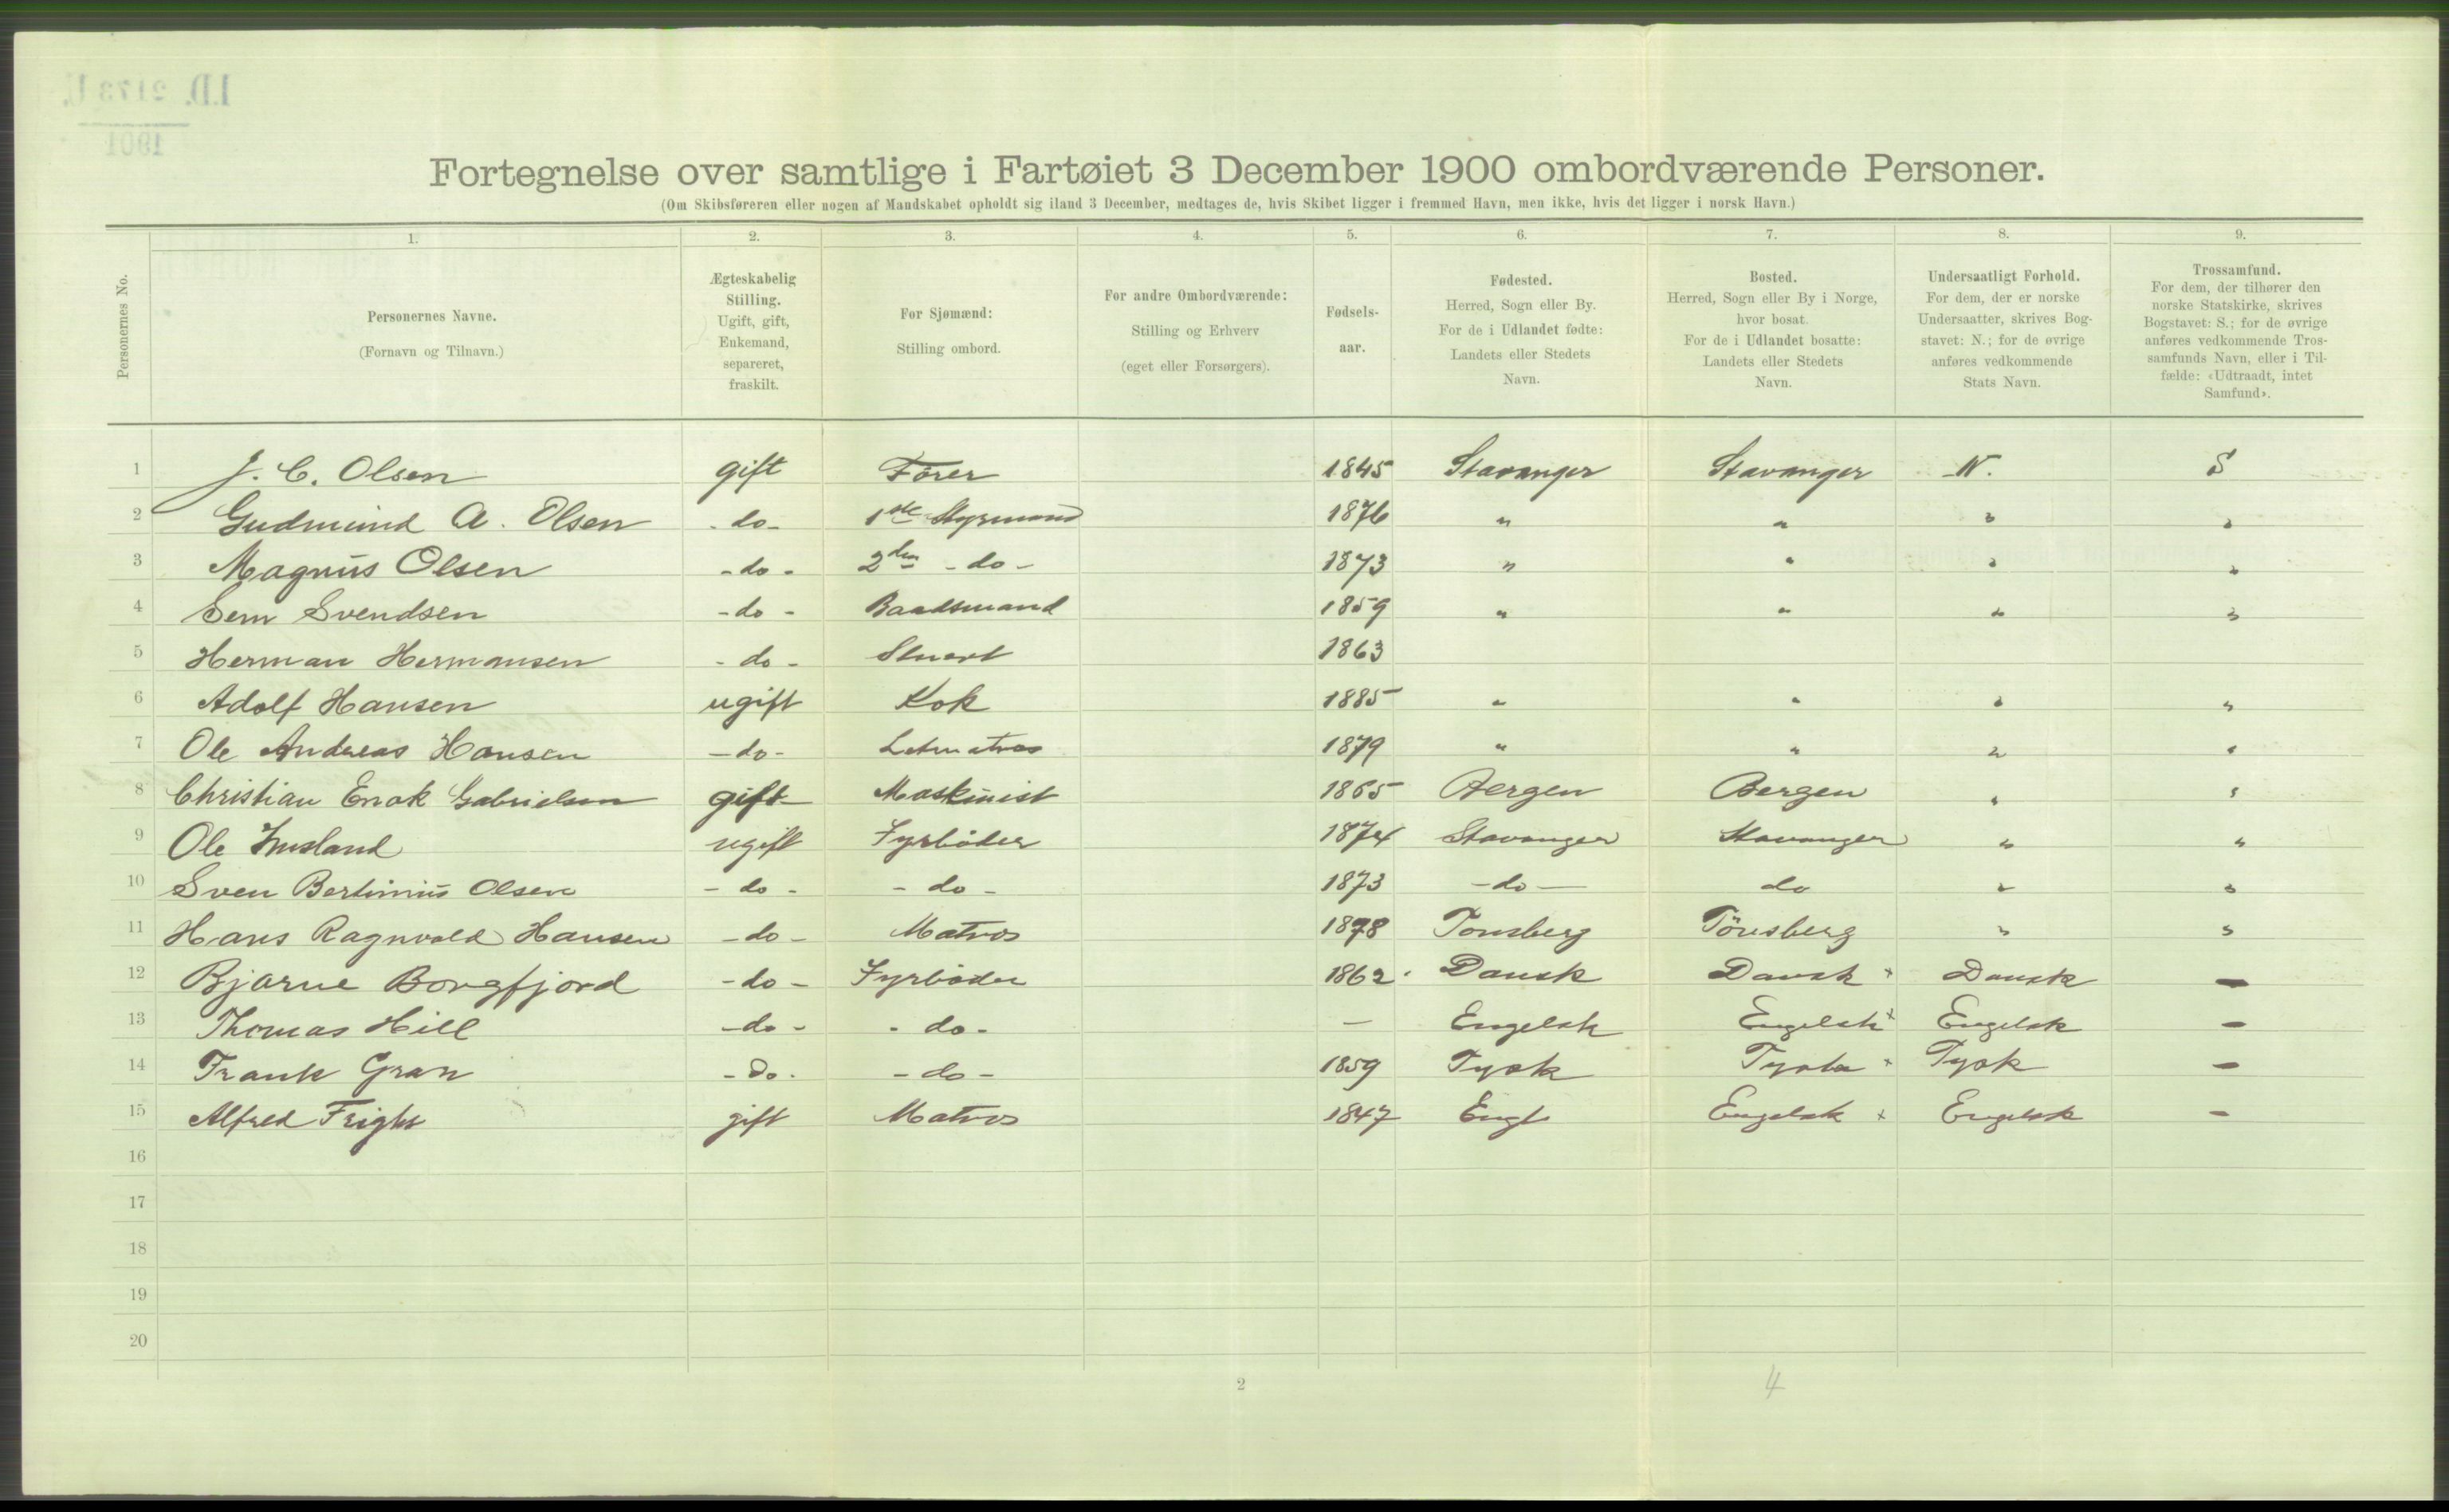 I.D. 2173 U.
1901
Fortegnelse over samtlige i Fartøiet 3 December 1900 ombordværende Personer.
(Om Skibsføreren eller nogen af Mandskabet opholdt sig iland 3 December, medtages de, hvis Skibet ligger i fremmed Havn, men ikke, hvis det ligger i norsk Havn.)
Personernes No.
1. 2. 3. 4. 5. 6. 7. 8. 9.
Personernes Navne.
(Fornavn og Tilnavn.)
Ægteskabelig
Stilling.
Ugift, gift,
Enkemand,
separeret,
fraskilt.
For Sjømænd:
Stilling ombord.
For andre Ombordværende:
Stilling og Erhverv
(eget eller Forsørgers).
Fødsels-
aar.
Fødested.
Herred, Sogn eller By.
For de i Udlandet fødte:
Landets eller Stedets
Navn.
Bosted.
Herred, Sogn eller By i Norge,
hvor bosat.
For de i Udlandet bosatte:
Landets eller Stedets
Navn.
Undersaatligt Forhold.
For dem, der er norske
Undersaatter, skrives Bog-
stavet: N.; for de øvrige
anføres vedkommende
Stats Navn.
Trossamfund.
For dem, der tilhører den
norske Statskirke, skrives
Bogstavet: S.; for de øvrige
anføres vedkommende Tros-
samfunds Navn, eller i Til-
fælde: «Udtraadt, intet
Samfund».
1 J. C. Olsen gift Förer 1845 Stavanger Stavanger N. S
2 Gudmund A. Olsen - do - 1ste Styrmand 1876 " " " "
3 Magnus Olsen - do - 2den - do - 1873 " " " "
4 Sem Svendsen - do - Baadsmand 1859 " " " "
5 Herman Hermansen - do - Stuert 1863
6 Adolf Hansen ugift Kok 1885 " " " "
7 Ole Andreas Hansen - do - Letmatros 1879 " " " "
8 Christian Enok Gabrielsen gift Maskinist 1865 Bergen Bergen " "
9 Ole ugift Fyrböder 1874 Stavanger Stavanger " "
10 Sven Bertinius Olsen - do - - do - 1873 - do - do " "
11 Hans Ragnvald Hansen - do - Matros 1878 Tonsberg Tönsberg " "
12 Bjarne Borgfjord - do - Fyrböder 1862 Dansk Dansk × Dansk -
13 Thomas Hill - do - - do - - Engelsk Engelsk × Engelsk -
14 Frank Gran - do - - do - 1859 Tysk Tysk × Tysk -
15 Alfred Fright gift Matros 1847 Engl Engelsk × Engelsk -
16
17
18
19
20
2 4